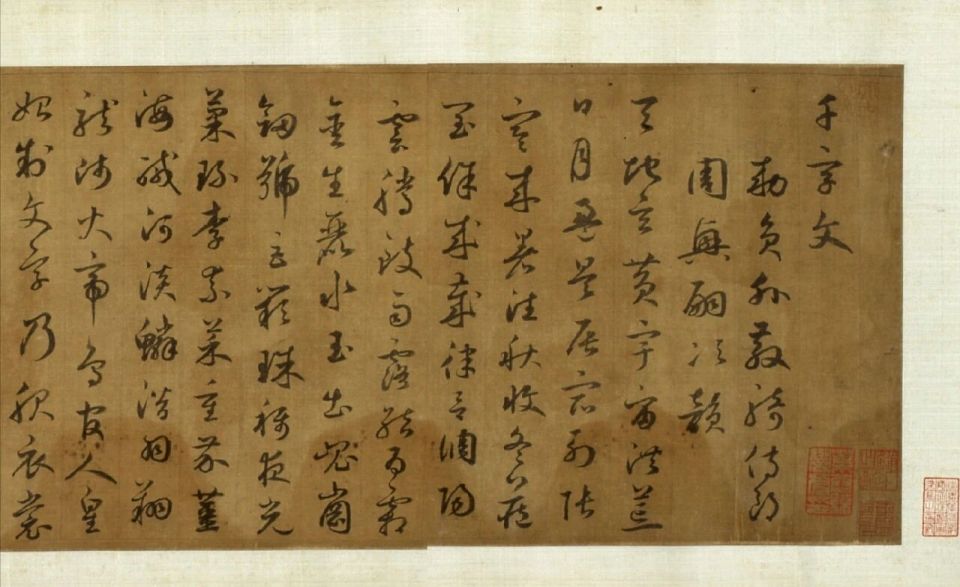 千字文
勅員外散騎侍郎
周興嗣次韻
天地玄黃宇宙洪荒
日月盈昃辰宿列張
寒來暑往秋收冬藏
閏餘成歲律呂調陽
雲騰致雨露結為霜
金生麗水玉出崑崗
劒號巨闕珠稱夜光
菓珍李柰菜重芥薑
海鹹河淡鱗潛羽翔
龍師火帝鳥官人皇
始制文字乃服衣裳